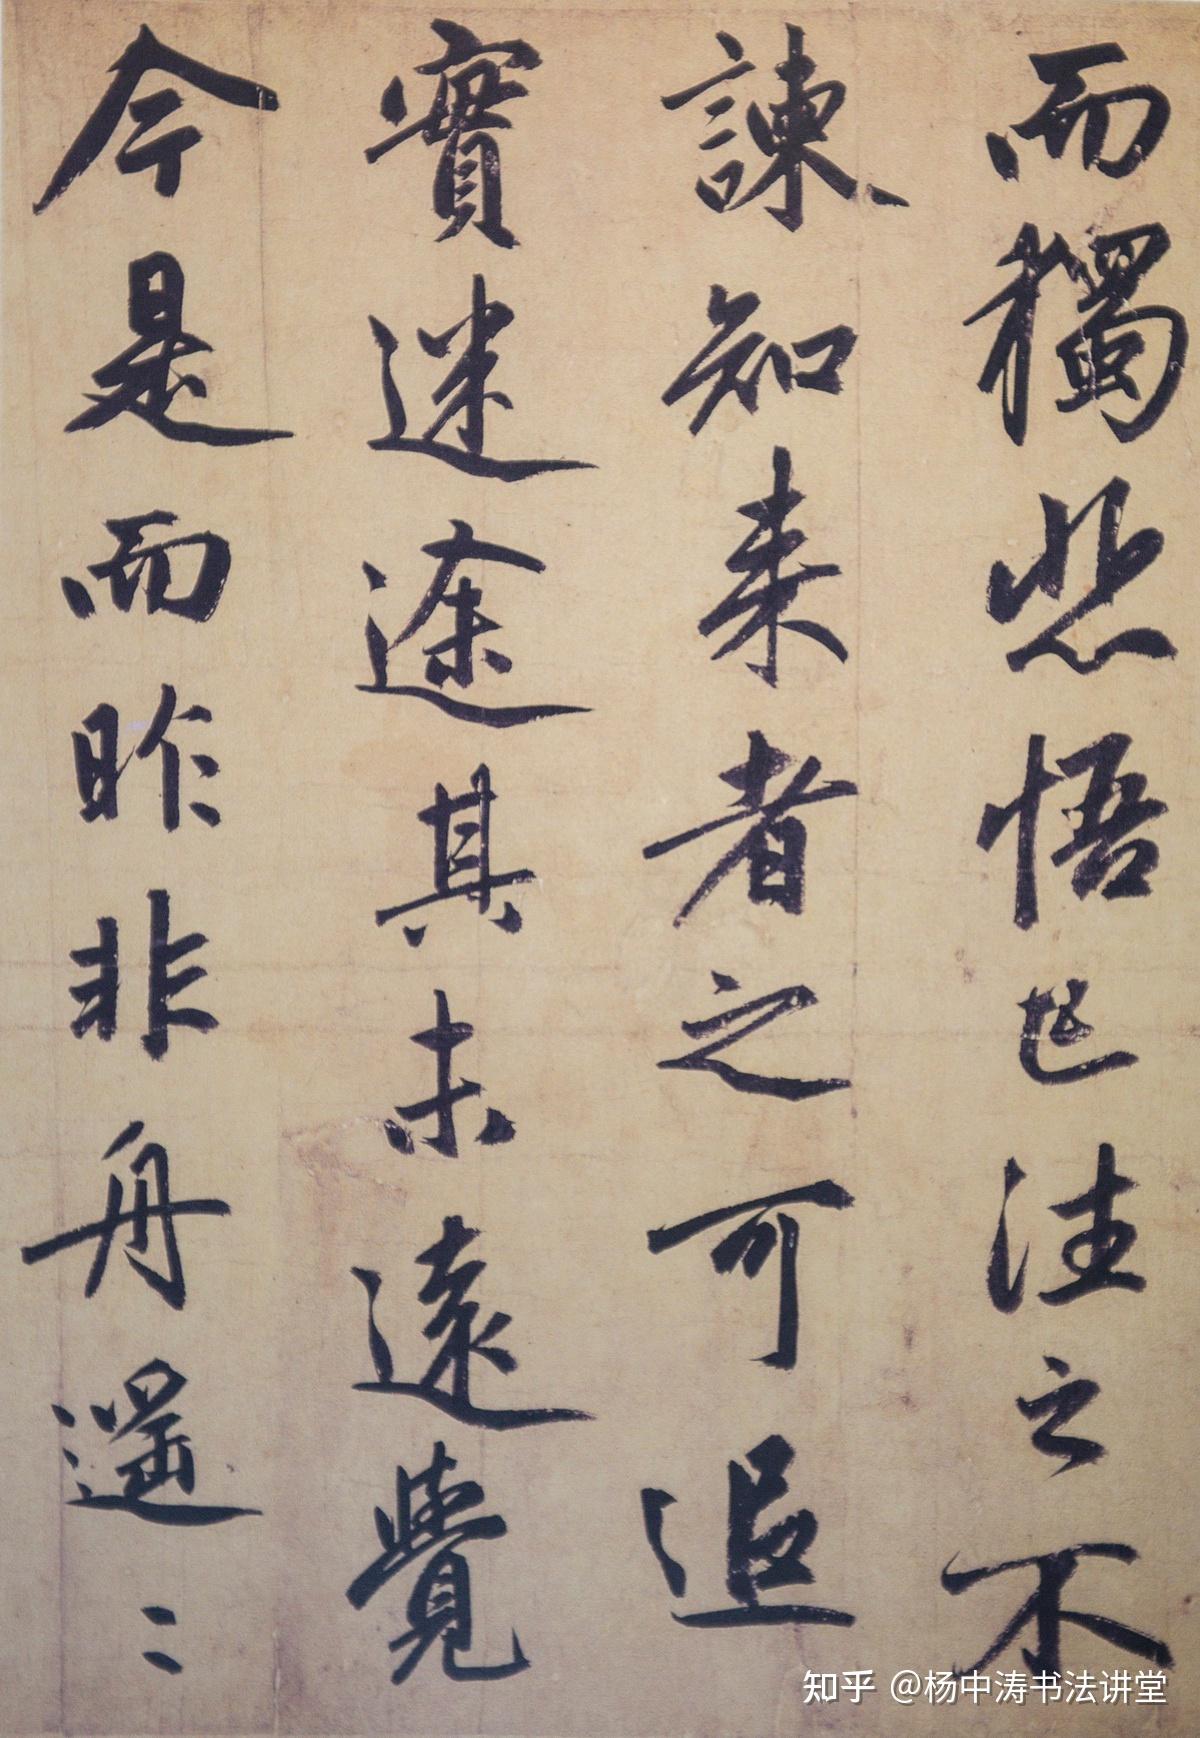 而獨悲悟已往之不
諫知来者之可追
實迷途其未遠覺
今是而昨非舟遥〻
知乎 @杨中涛书法讲堂